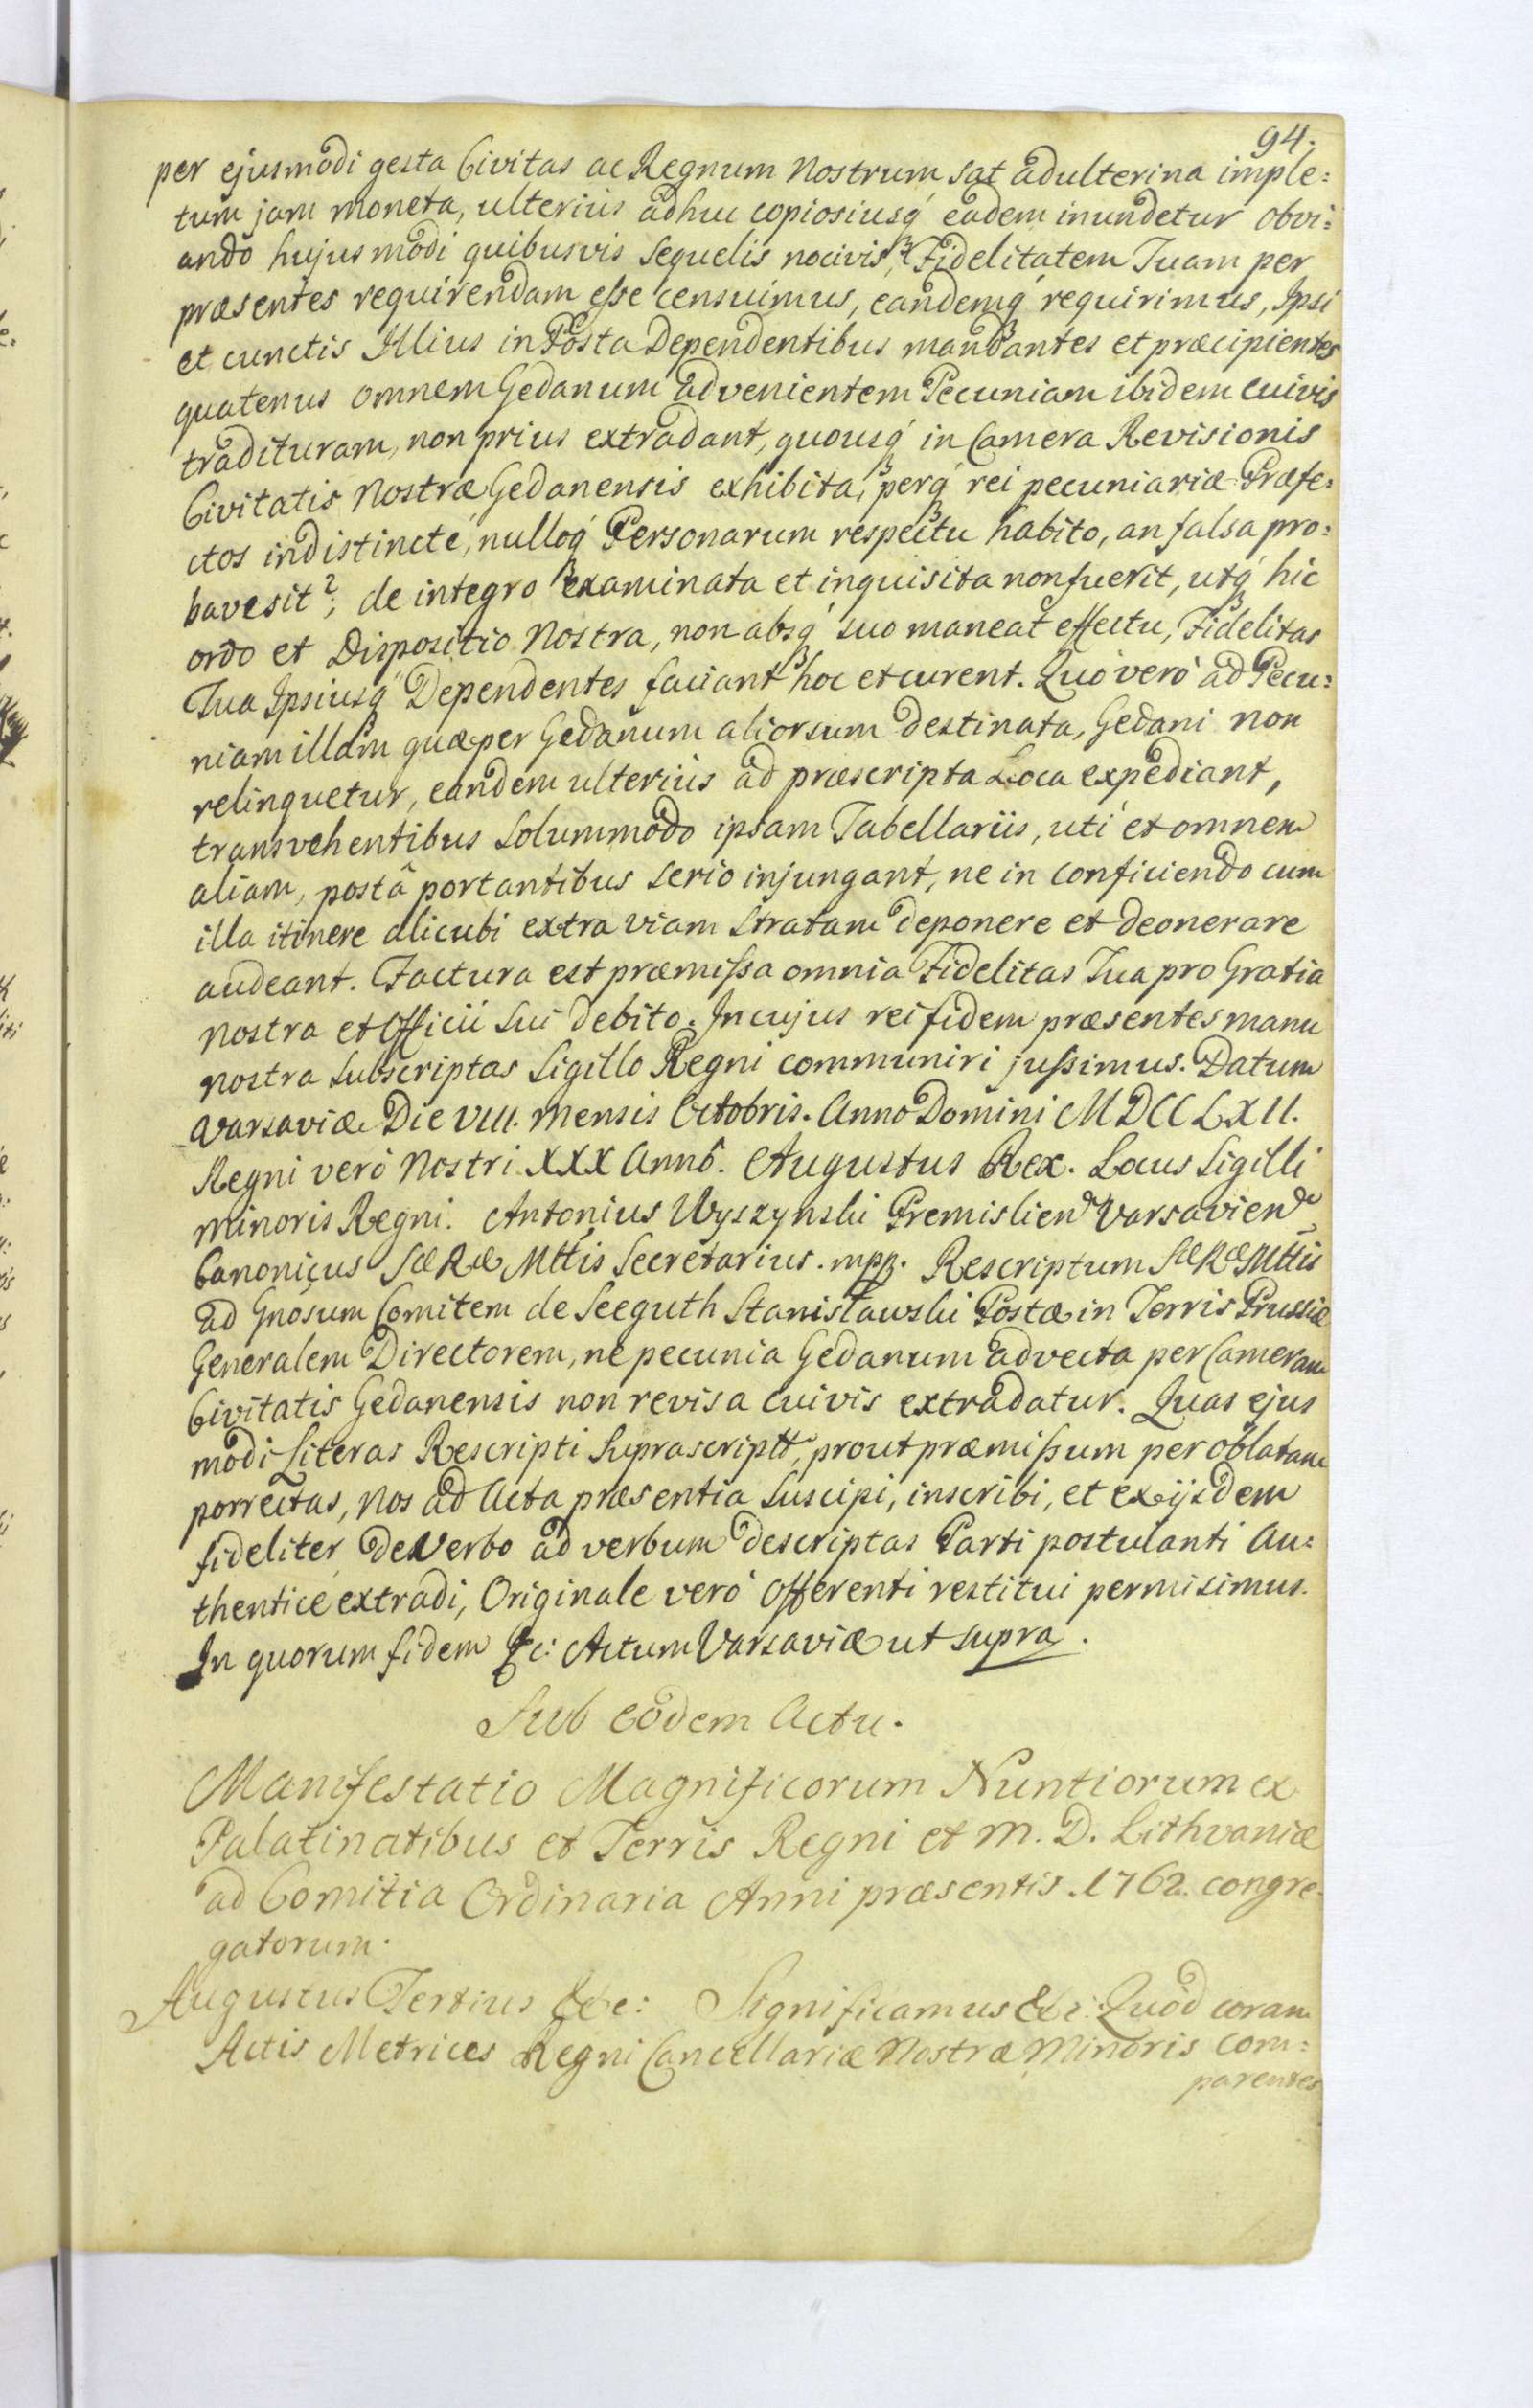 94.
per ejusmodi gesta Civitas ac Regnum Nostrum sat adulterina imple:
tum jam moneta, ulterius adhuc copiosiusq́ eadem inundetur obvi:
ando hujusmodi quibusvis sequelis nocivis, Fidelitatem Tuam per
præsentes requirendam esse censuimus, eandemq́ requirimus, Ipsi
et cunctis Illius in Posta Dependentibus mandantes et præcipientes
quatenus omnem Gedanum advenientem Pecuniam ibidem cuivis
tradituram, non prius extradant, quousq́ in Camera Revisionis
Civitatis Nostræ Gedanensis exhibita, perq́ rei pecuniariæ Præfe:
ctos indistincté, nulloq́ Personarum respectu habito, an falsa pro:
bavesit?, de integro examinata et inquisita non fuerit, utq́ hic
ordo et Dispositio Nostra, non absq́ suo maneat effectu, Fidelitas
Tua Ipsiusq́ Dependentes faciant hoc et curent. Quò verò ad Pecu:
niam illam quæ per Gedanum aliorsum destinata, Gedani non
relinquetur, eandem ulteriùs ad præscripta Loca expediant,
transvehentibus solummodo ipsam Tabellariis, uti et omnem
aliam, postâ portantibus serio injungant, ne in conficiendo cum
illa itinere alicubi extra viam stratam deponere et deonerare
audeant. Factura est præmissa omnia Fidelitas Tua pro Gratia
Nostra et Officii sui debito. In cujus rei fidem præsentes manu
nostra subscriptas Sigillo Regni communiri jussimus. Datum
Varsaviæ Die VIII. mensis Octobris. Anno Domini MDCCLXII.
Regni verò Nostri XXX Annô. Augustus Rex. Locus Sigilli
minoris Regni. Antonius Wyszynski Premislien. Varsavien.
Canonicus Sæ Ræ Mttis Secretarius. mpp. Rescriptum Sæ Ræ Mttis
ad Gnosum Comitem de Seeguth Stanisławski Postæ in Terris Prussiæ
Generalem Directorem, ne pecunia Gedanum advecta per Cameram
Civitatis Gedanensis non revisa cuivis extradatur. Quas ejus
modi Literas Rescripti suprascriptt, prout præmissum per oblatam
porrectas, Nos ad Acta præsentia suscipi, inscribi, et ex ijsdem
fideliter de Verbo ad verbum descriptas Parti postulanti Au:
thenticé extradi, Originale verò Offerenti restitui permisimus.
In quorum fidem &c: Actum Varsaviæ ut supra.
Sub eodem Actu.
Manifestatio Magnificorum Nuntiorum ex
Palatinatibus et Terris Regni et M. D. Lithvaniæ
ad Comitia Ordinaria Anni præsentis. 1762. congre:
gatorum.
Augustus Tertius &c: Significamus &c: Quòd coram
Actis Metrices Regni Cancellariæ Nostræ Minoris com:
parentes